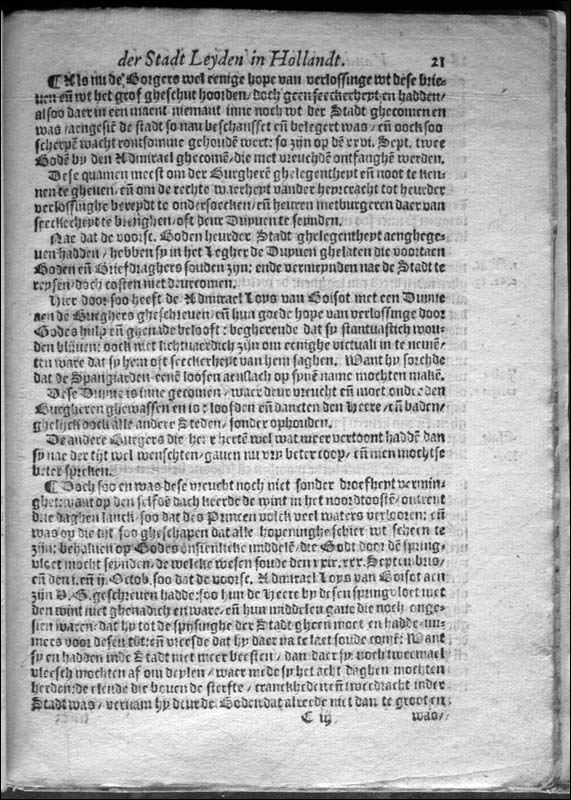 der Stadt Leyden in Hollandt. 21
¶ Als nu de Borgers wel eenige hope van verlossinge wt dese brie-
uen eñ wt het grof gheschut hoorden/ doch geen seeckerheyt en hadden/
alsoo daer in een maent niemant inne noch wt der Stadt ghecomen en
was /aengesiē de stadt so nau beschanstet eñ belegert was / eñ oock soo
scherpē wacht rontsomme gehoudē wert: so zijn op dē xxvi. Sept. twee
Bodē by den Admirael ghecomē/die met vreuchdē ontfanghē werden.
Dese quamen meest om der Burgherē ghelegentheyt eñ noot te ken-
nen te gheuen/ eñ om de rechte waerheyt vander heyrcracht tot heurder
verlossinghe bereydt te ondersoecken/ eñ heuren metburgeren daer van
seeckerheyt te brenghen/ oft deur Duyuen te seynden.
Nae dat de voors. Boden heurder Stadt ghelegentheyt aenghege-
uen hadden/ hebben sy in het Legher de Duyuen ghelaten die voortaen
Boden eñ Briefdraghers souden zijn: ende vermeynden nae de Stadt te
reysen/ doch costen niet deurcomen.
Hier door soo heeft de Admirael Loys van Boisot met een Duyue
aen de Burghers gheschreuen/ eñ hun goede hope van verlossinge door
Godes hulp eñ ghenade belooft: begherende dat sy stantuastich wou-
den blijuen: oock niet lichtuaerdich zijn om eenighe victuali in te nemē/
ten ware dat sy hem oft seeckerheyt van hem saghen. Want hy sorchde
dat de Spangiarden eenē loosen aenslach op synē name mochten makē.
Dese Duyue is inne gecomen/ waer deur vreucht eñ moet onder den
Burgheren ghewassen en is: loofden eñ dancten den Heere/ eñ baden/
ghelijck oock alle andere Steden/ sonder ophouden.
De andere Burgers die heur hertē wel wat meer vertoont haddē dan
sy nae der tijt wel wenschten/ gauen nu vry beter coop/ eñ men mochtse
beter spreken.
¶ Doch soo en was dese vreucht noch niet sonder droefheyt vermin-
ghet: want op den selfsē dach keerde de wint in het noordtoostē/ ontrent
drie daghen lanck/ soo dat des Princen volck veel waters verlooren: eñ
was op die tijt soo gheschapen dat alle hopeninghe schier wt scheen te
zijn: behaluen op Godes onsienliche middelē/ die Godt door dē spring-
vloet mocht seynden/ de welcke wesen soude den xxix. xxx. Septembris/
eñ den i. eñ ij. Octob. soo dat de voors. Admirael Loys van Boisot aen
zijn V. G. geschreuen hadde: soo hun de Heere by desen springvloet met
den wint niet ghenadich en ware/ eñ hun middelen gaue die noch onge-
sien waren/ dat hy tot de spijsinghe der Stadt gheen moet en hadde/ im-
mers voor desen tijt: eñ vreesde dat hy daer na te laet soude comē: Want
sy en hadden inde Stadt niet meer beesten/ dan daer sy noch tweemael
vleesch mochten af om deylen / waer mede sy het acht daghen mochten
herden: de elende die bouen de sterfte/ cranckheden eñ tweedracht inder
Stadt was/ vernam hy deur de Boden dat alreede niet dan te groot en
C iij was/